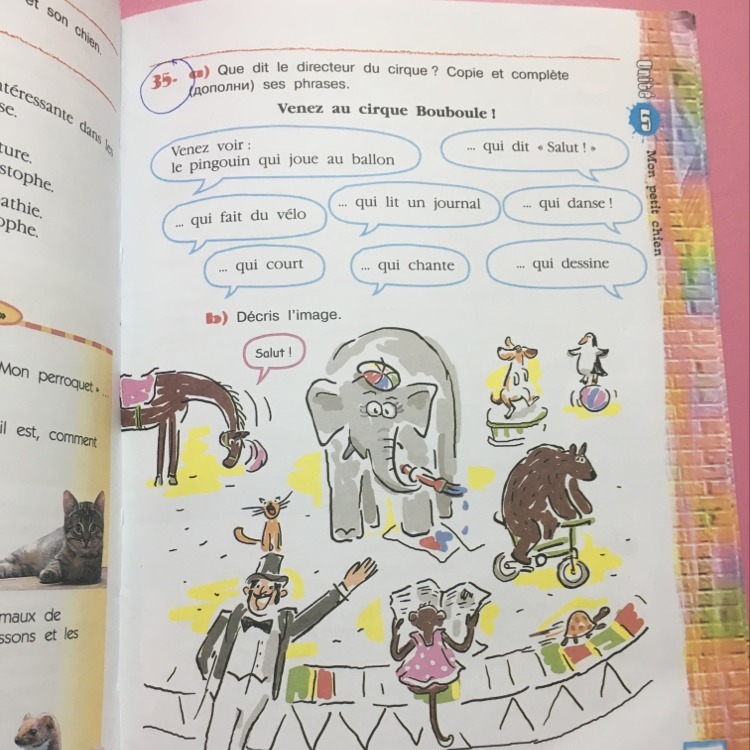 et son chien.
intéressante dans les
se.
ture.
stophe.
athie.
ophe.
»
Mon perroquet» ...
il est, comment
maux de
ssons et les
35. a) Que dit le directeur du cirque ? Copie et complète
(дополни) ses phrases.
Venez au cirque Bouboule !
Venez voir :
le pingouin qui joue au ballon
... qui dit « Salut ! »
... qui fait du vélo
... qui lit un journal
... qui danse !
... qui court
... qui chante
... qui dessine
b) Décris l'image.
Salut !
Unité 5
Mon petit chien